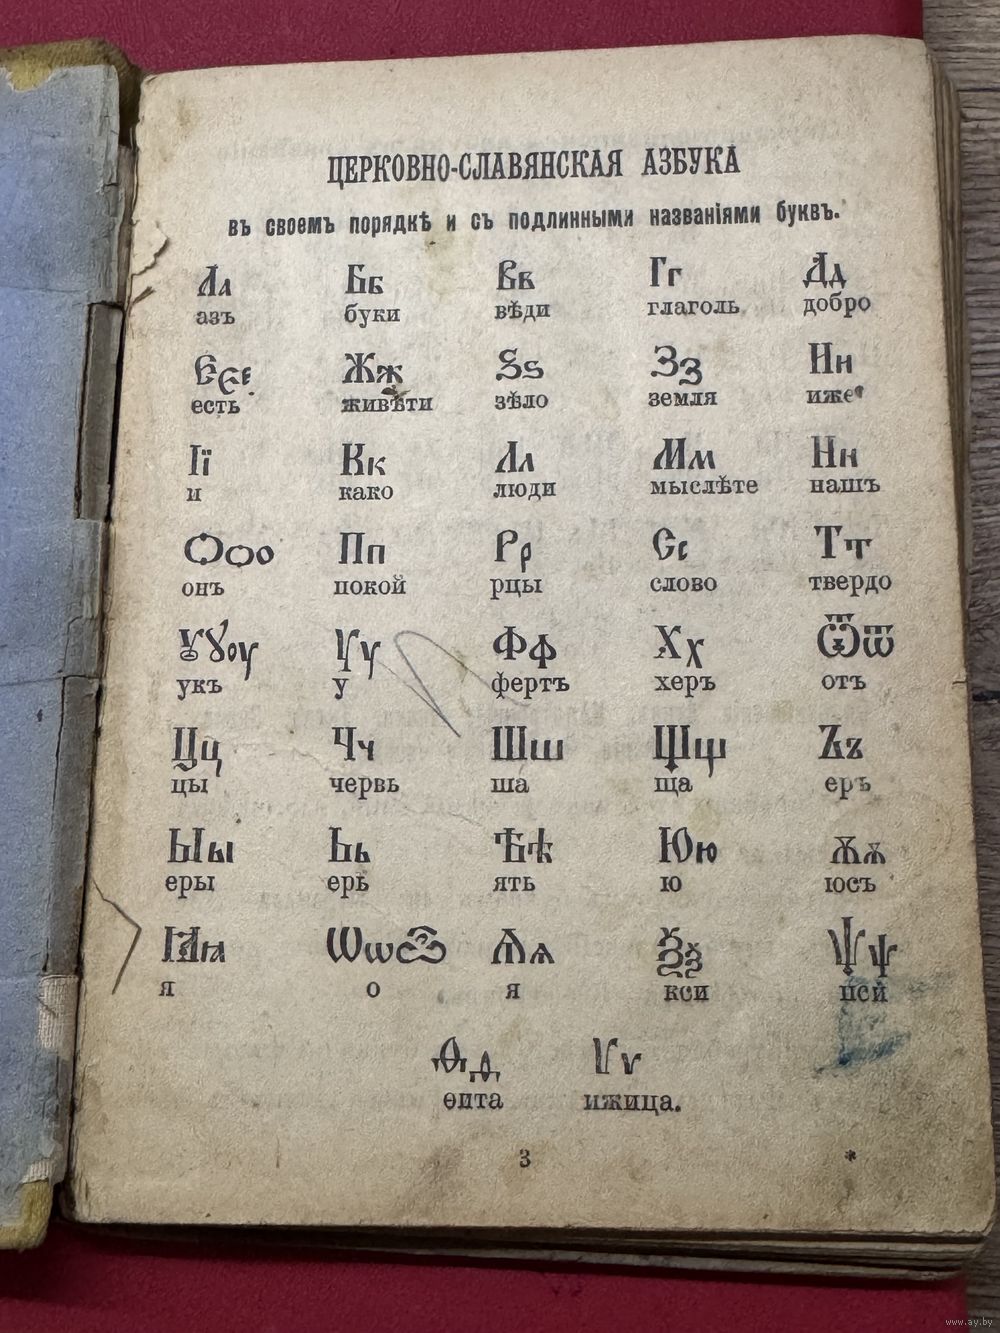 ЦЕРКОВНО-СЛАВЯНСКАЯ АЗБУКА
въ своемъ порядкѣ и съ подлинными названіями буквъ.
Аа Бб Вв Гг Дд
азъ буки вѣди глаголь добро
Єєе Жж Ѕѕ Зз Ии
есть живѣти зѣло земля иже
Її Кк Лл Мм Нн
и како люди мыслѣте нашъ
Ѻѻо Пп Рр Сс Тт
онъ покой рцы слово твердо
Ꙋꙋоу Уу Фф Хх Ѿѿ
укъ у фертъ херъ отъ
Цц Чч Шш Щщ Ъъ
цы червь ша ща еръ
Ыы Ьь Ѣѣ Юю Ѫѫ
еры ерь ять ю юсъ
Ꙗꙗ Ѡѡѽ Ѧѧ Ѯѯ Ѱѱ
я о я кси пси
Ѳѳ Ѵѵ
ѳита ижица.
3 *
www.ay.by